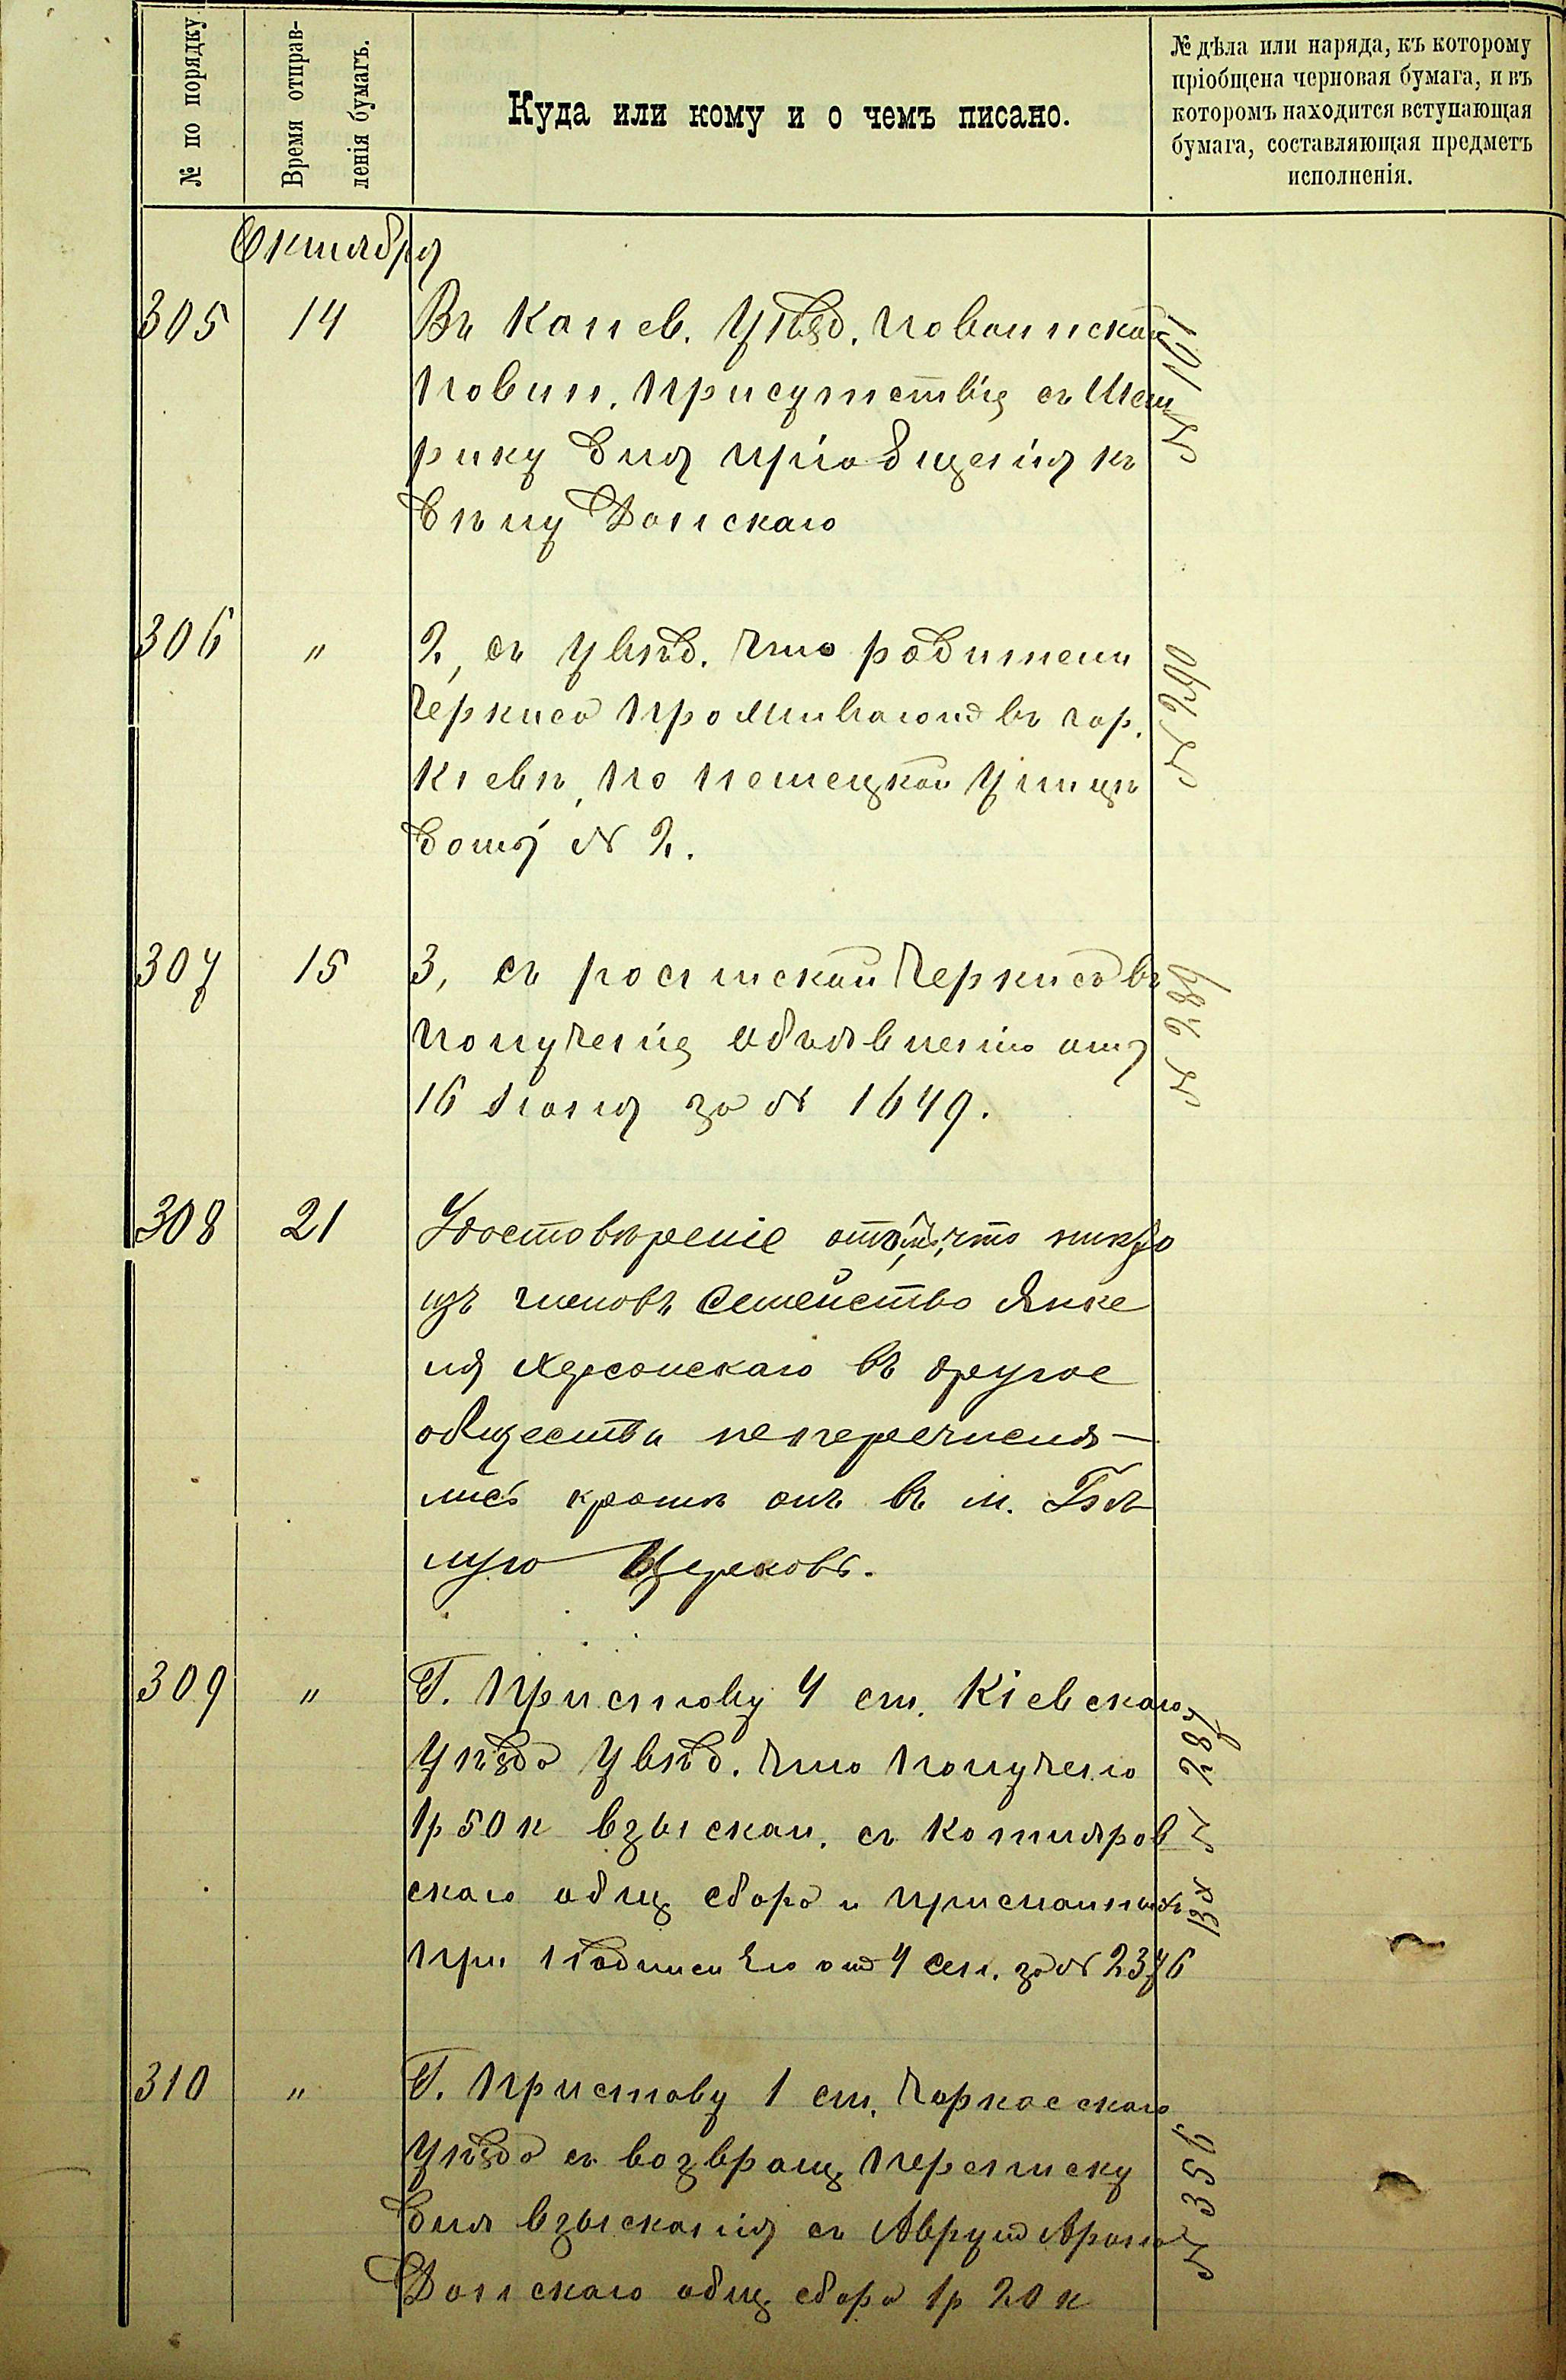 № по порядку.
Время отправ-
ленія бумагъ.
Куда или кому и о чемъ писано.
№ дѣла или наряда, къ которому
пріобщена черновая бумага, и въ
которомъ находится вступающая
бумага, составляющая предметъ
исполненія.
Октября
305 14 Въ Канев. Уѣзд. по воинской
повин. присутствіе съ Мет
рику для пріобщенія къ
дѣлу Донскаго
№ 101
306 " 2, съ увѣд. что родители
Черкиса проживают въ гор.
Кіевѣ, по Немецкой Улицѣ
домъ № 2.
№ 290
307 15 3, съ роспиской Черкиса въ
полученіе объявленію отъ
16 Іюля за № 1649.
№ 289
308 21 Удостовѣреніе отомъ, что никто
изъ членовъ семейство Янке
ля Херсонскаго въ другое
общества неперечисля-
лись кромѣ онъ въ м. Бѣ
лую Церковь.
309 " Г. Приставу 4 ст. Кіевскаго
уѣзда увѣд. что получено
1р 50 к взыскан. съ Котляров
скаго общ сбора и присланных
при надписи его от 4 сен. за № 2376
Вх № 287
310 " Г. Приставу 1 ст. Черкасскаго
уѣзда съ возвращ переписку
для взысканія съ Аврум Арона
Донскаго общ сбора 1р 20 к
№ 356